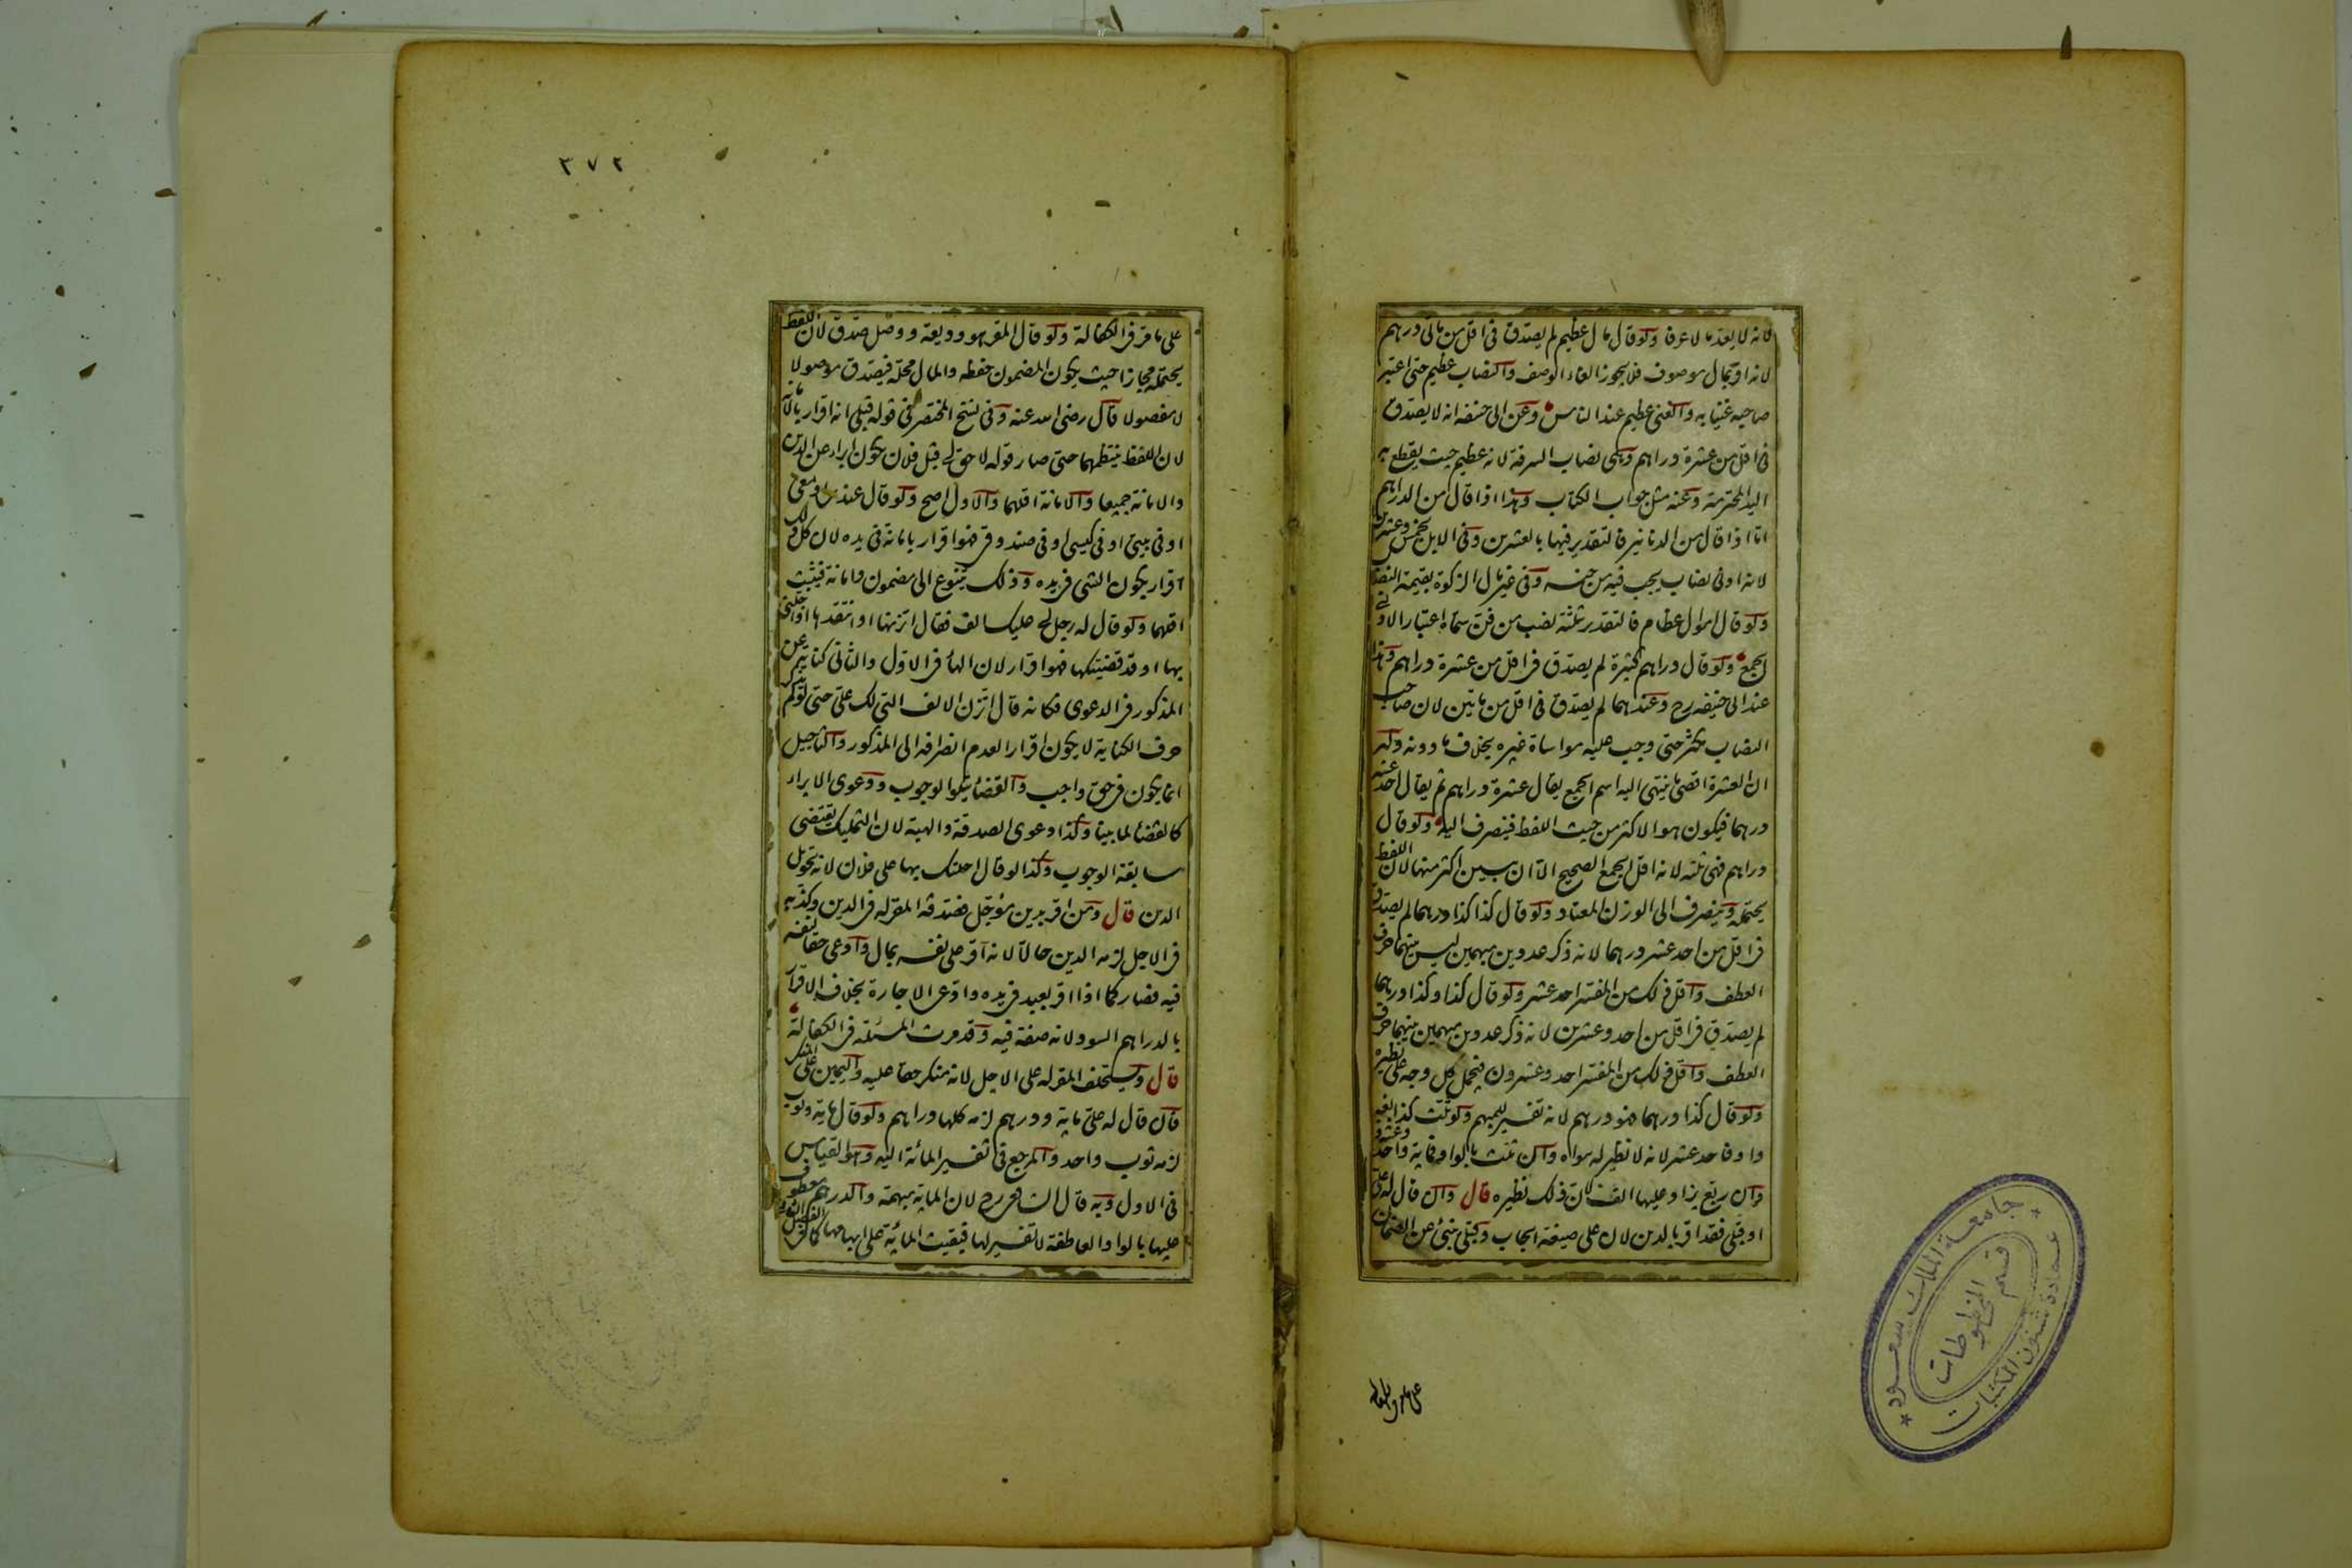 لانه لا يعد مالا عرفا ولو قال مال عظيم لم يصدق فى اقل من مائتى درهم
لانه اقر بمال موصوف فلا يجوز الغاء الوصف والنصاب عظيم حتى اعتبر
صاحبه غنيا به والغنى عظيم عند الناس وعن ابى حنيفه انه لا يصدق
فى اقل من عشرة دراهم وهى نصاب السرقة لانه عظيم حيث يقطع به
اليد المحترمة وعنه مثل جواب الكتاب وهذا اذا قال من الدراهم
اما اذا قال من الدنانير فالتقدير فيها بالعشرين وفى الابل بخمس وعشرين
لانه ادنى نصاب يجب فيه من جنسه وفى غير مال الزكوة بقيمة النصاب
ولو قال اموال عظام فالتقدير بثلثة نصب من فن سماه اعتبارا لادنى
الجمع ولو قال دراهم كثيرة لم يصدق فى اقل من عشرة دراهم وهذا
عند ابى حنيفه رح وعندهما لم يصدق فى اقل من مائتين لان صاحب
النصاب مكثر حتى وجب عليه مواساة غيره بخلاف ما دونه وله
ان العشرة اقصى ما ينتهى اليه اسم الجمع يقال عشرة دراهم ثم يقال احد عشر
درهما فيكون هو الاكثر من حيث اللفظ فينصرف اليه ولو قال
دراهم فهى ثلثه لانه اقل الجمع الصحيح الا ان يبين اكثر منها لان اللفظ
يحتمله وينصرف الى الوزن المعتاد ولو قال كذا كذا درهما لم يصدق
فى اقل من احد عشر درهما لانه ذكر عددين مبهمين ليس بينهما حرف
العطف واقل ذلك من المفسر احد عشر ولو قال كذا وكذا درهما
لم يصدق فى اقل من احد وعشرين لانه ذكر عددين مبهمين بينهما حرف
العطف واقل ذلك من المفسر احد وعشرون فيحمل كل وجه على نظيره
ولو قال كذا درهما فهو درهم لانه تفسير للمبهم ولو ثلث كذا بغير
واو فاحد عشر لانه لا نظير له سواه وان ثلث بالواو فماية واحد وعشرون
وان ربع يزاد عليها الف لان ذلك نظيره قال وان قال له على
او قبلى فقد اقر بالدين لان على صيغة ايجاب وقبلى ينبئ عن الضمان
على ما مر فى الكفالة
٣٧٢
على ما مر فى الكفالة ولو قال المقر هو وديعة ووصل صدق لان اللفظ
يحتمله مجازا حيث يكون المضمون حفظه والمال محله فيصدق موصولا
لا مفصولا قال رضى الله عنه وفى نسخ المختصر فى قوله قبلى انه اقرار بالامانة
لان اللفظ ينتظمهما حتى صار قوله لا حق لى قبل فلان يكون ابراء عن الدين
والامانة جميعا والامانة اقلهما والاول اصح ولو قال عندى او معى
او فى بيتى او فى كيسى او فى صندوقى فهو اقرار بامانة فى يده لان كل ذلك
اقرار بكون الشى فى يده وذلك يتنوع الى مضمون وامانة فيثبت
اقلهما ولو قال له رجل لى عليك الف فقال اتزنها او انتقدها او اجلنى
بها او قد قضيتكها فهو اقرار لان الهاء فى الاول والثانى كناية عن
المذكور فى الدعوى فكانه قال اتزن الالف التى لك على حتى لو لم يذكر
حرف الكناية لا يكون اقرارا لعدم انصرافه الى المذكور والتاجيل
انما يكون فى حق واجب والقضاء يتلو الوجوب ودعوى الابراء
كالقضاء لما بينا وكذا دعوى الصدقة والهبة لان التمليك يقتضى
سابقة الوجوب وكذا لو قال احلتك بها على فلان لانه تحويل
الدين قال ومن اقر بدين مؤجل فصدقه المقر له فى الدين وكذبه
فى الاجل لزمه الدين حالا لانه اقر على نفسه بمال وادعى حقا لنفسه
فيه فصار كما اذا اقر بعبد فى يده وادعى الاجارة بخلاف الاقرار
بالدراهم السود لانه صفة فيه وقد مرت المسئلة فى الكفالة
قال ويستحلف المقر له على الاجل لانه منكر حقا عليه واليمين على المنكر
فان قال له على ماية ودرهم لزمه كلها دراهم ولو قال ماية وثوب
لزمه ثوب واحد والمرجع فى تفسير المائة اليه وهو القياس
فى الاول وبه قال الشافعى رح لان الماية مبهمة والدرهم معطوف
عليها بالواو العاطفة لا تفسير لها فبقيت المائة على ابهامها كما فى الفصل الثانى
جامعة الملك سعود
عمادة شئون المكتبات
قسم المخطوطات